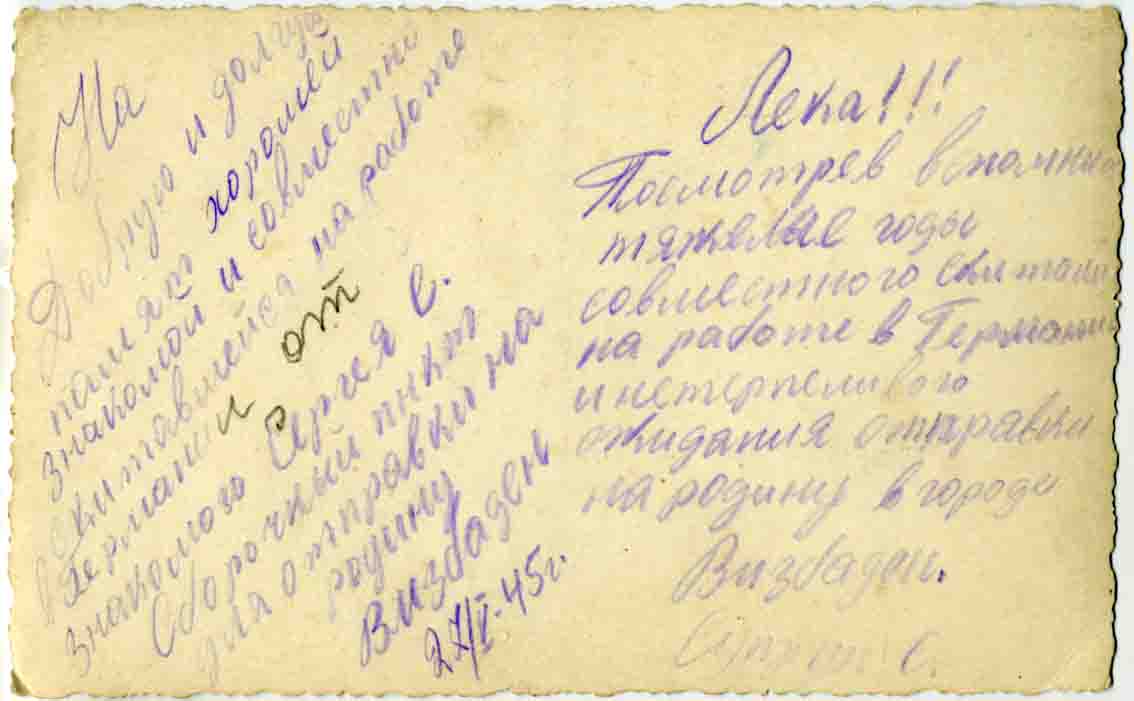 На
Добрую и долгую
память хорошей
знакомой и совместно
скитавшейся на работе
в Германии от
знакомого Сергея С.
Сборочный пункт
для отправки на
родину
Визбаден
27/V-45г.
Лека!!!
Посмотрев вспомни
тяжелые годы
совместного скитания
на работе в Германии
и нетерпеливого
ожидания отправки
на родину в городе
Визбаден.
С.